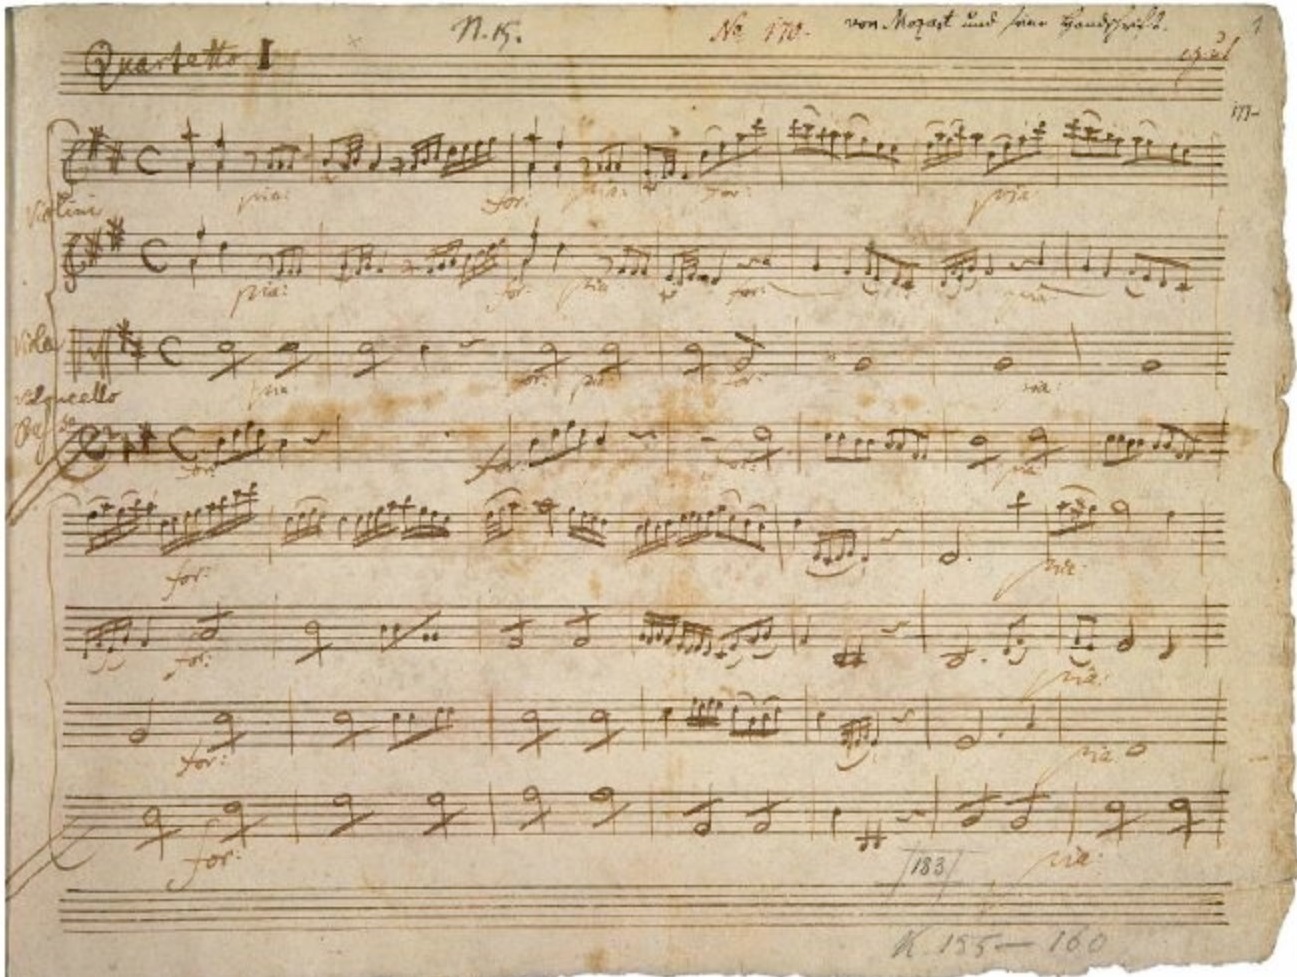 N. 15.
No 170.
von Mozart und seine Handschrift.
1
Quartetto I
177-
Violini
pia:
for:
pia:
for:
pia
pia:
for:
pia
for:
pia:
Viola
pia
for:
pia
for:
pia:
Violoncello
Basso
for:
for:
for:
pia
for:
pia:
for:
pia:
for:
pia
for:
pia:
183
K. 155 — 160